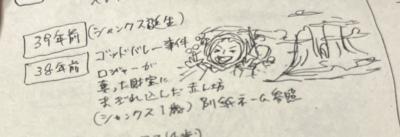 39年前 (シャンクス誕生)
38年前 ゴッドバレー事件
ロジャーが
奪った財宝に
まぎれ込んだ赤ん坊
(シャンクス1歳) 別紙ネーム参照